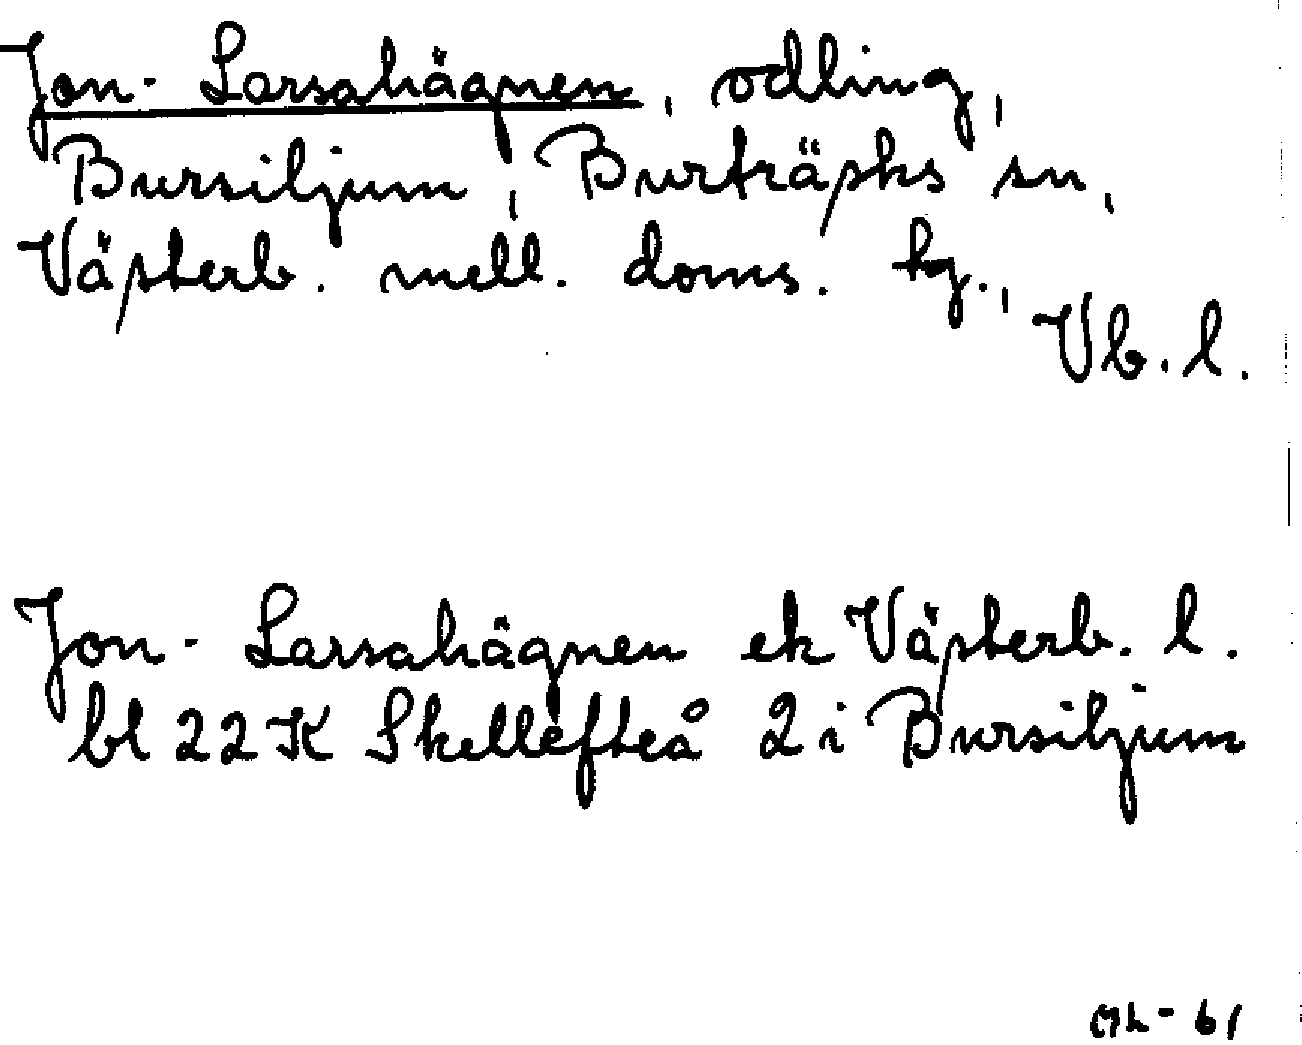 Jon-Larsahägnen, odling,
Bursiljum, Burträsks sn,
Västerb. mell. doms. hg.,
Vb. l.
Jon-Larsahägnen ek Västerb. l.
bl 22 K Skellefteå 2 i Bursiljum